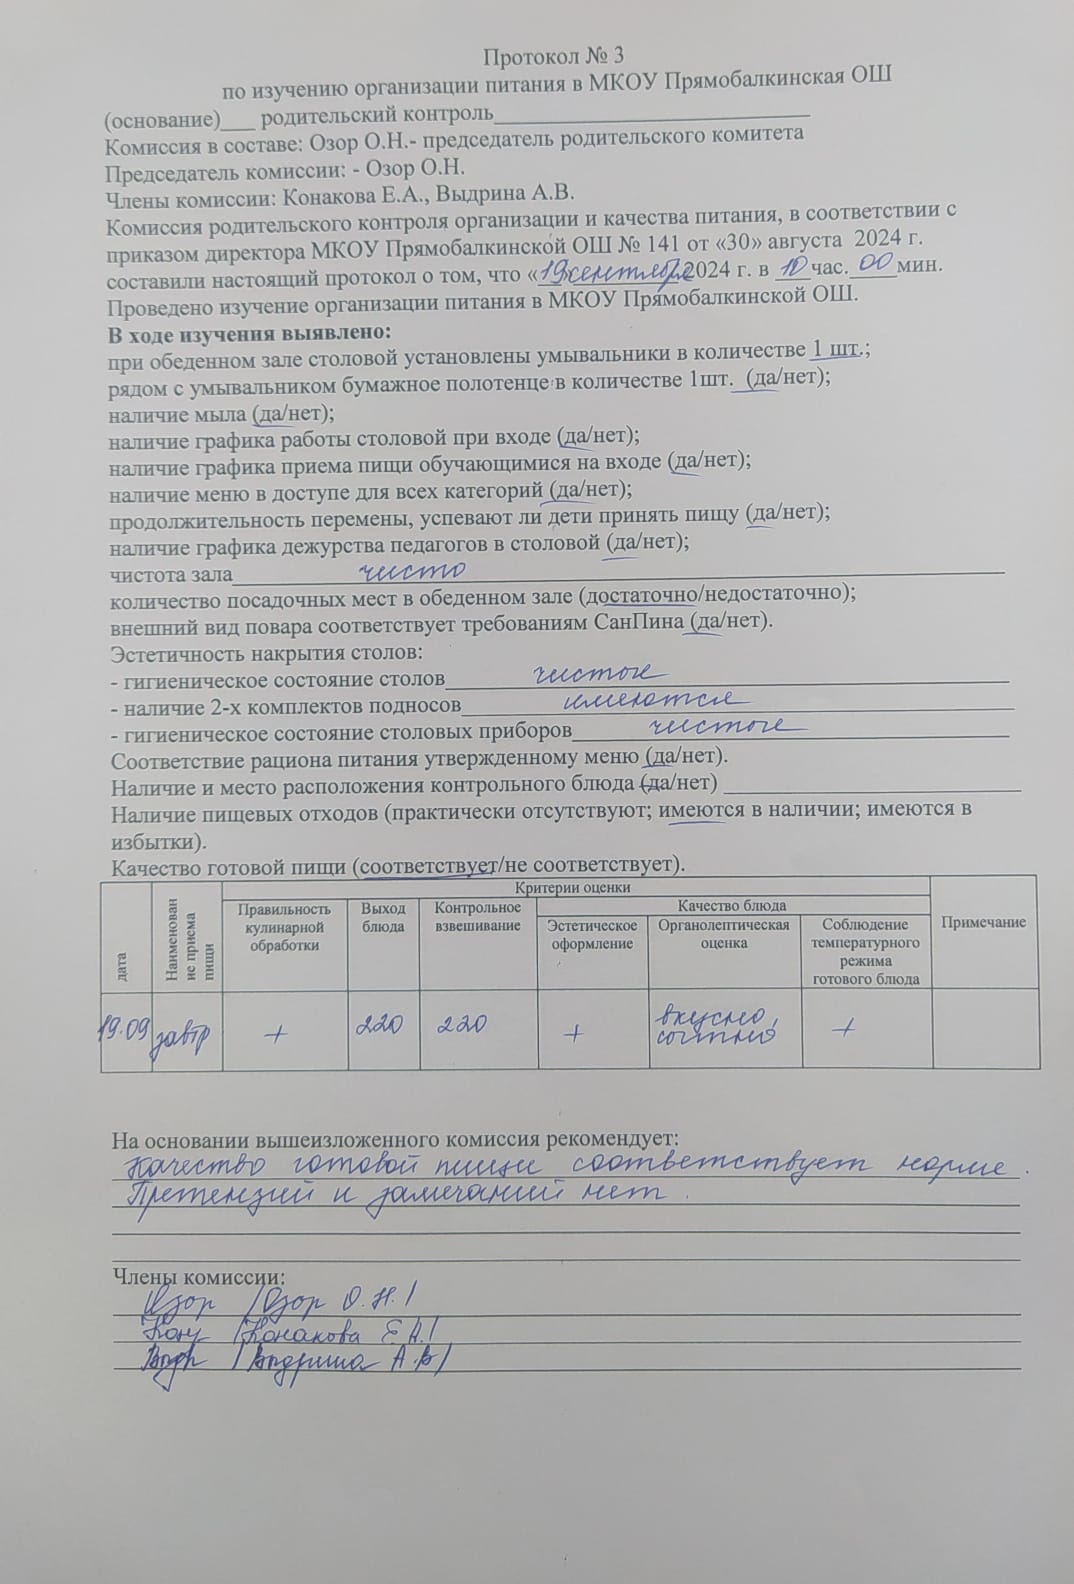 Протокол № 3
по изучению организации питания в МКОУ Прямобалкинская ОШ
(основание)___ родительский контроль____________________________
Комиссия в составе: Озор О.Н.- председатель родительского комитета
Председатель комиссии: - Озор О.Н.
Члены комиссии: Конакова Е.А., Выдрина А.В.
Комиссия родительского контроля организации и качества питания, в соответствии с
приказом директора МКОУ Прямобалкинской ОШ № 141 от «30» августа 2024 г.
составили настоящий протокол о том, что «19» сентября 2024 г. в 10 час. 00 мин.
Проведено изучение организации питания в МКОУ Прямобалкинской ОШ.
В ходе изучения выявлено:
при обеденном зале столовой установлены умывальники в количестве 1 шт.;
рядом с умывальником бумажное полотенце в количестве 1шт. (да/нет);
наличие мыла (да/нет);
наличие графика работы столовой при входе (да/нет);
наличие графика приема пищи обучающимися на входе (да/нет);
наличие меню в доступе для всех категорий (да/нет);
продолжительность перемены, успевают ли дети принять пищу (да/нет);
наличие графика дежурства педагогов в столовой (да/нет);
чистота зала чисто
количество посадочных мест в обеденном зале (достаточно/недостаточно);
внешний вид повара соответствует требованиям СанПина (да/нет).
Эстетичность накрытия столов:
- гигиеническое состояние столов чистые
- наличие 2-х комплектов подносов имеются
- гигиеническое состояние столовых приборов чистые
Соответствие рациона питания утвержденному меню (да/нет).
Наличие и место расположения контрольного блюда (да/нет) ____________________________
Наличие пищевых отходов (практически отсутствуют; имеются в наличии; имеются в
избытки).
Качество готовой пищи (соответствует/не соответствует).
дата
Наименован
ие приема
пищи
Критерии оценки
Правильность
кулинарной
обработки
Выход
блюда
Контрольное
взвешивание
Качество блюда
Эстетическое
оформление
Органолептическая
оценка
Соблюдение
температурного
режима
готового блюда
Примечание
19.09 завтр + 220 220 + вкусно, +
сытно
На основании вышеизложенного комиссия рекомендует:
Качество готовой пищи соответствует норме.
Претензий и замечаний нет.
Члены комиссии:
Озор /Озор О.Н./
Кону /Конакова Е.А./
Выдр /Выдрина А.В/